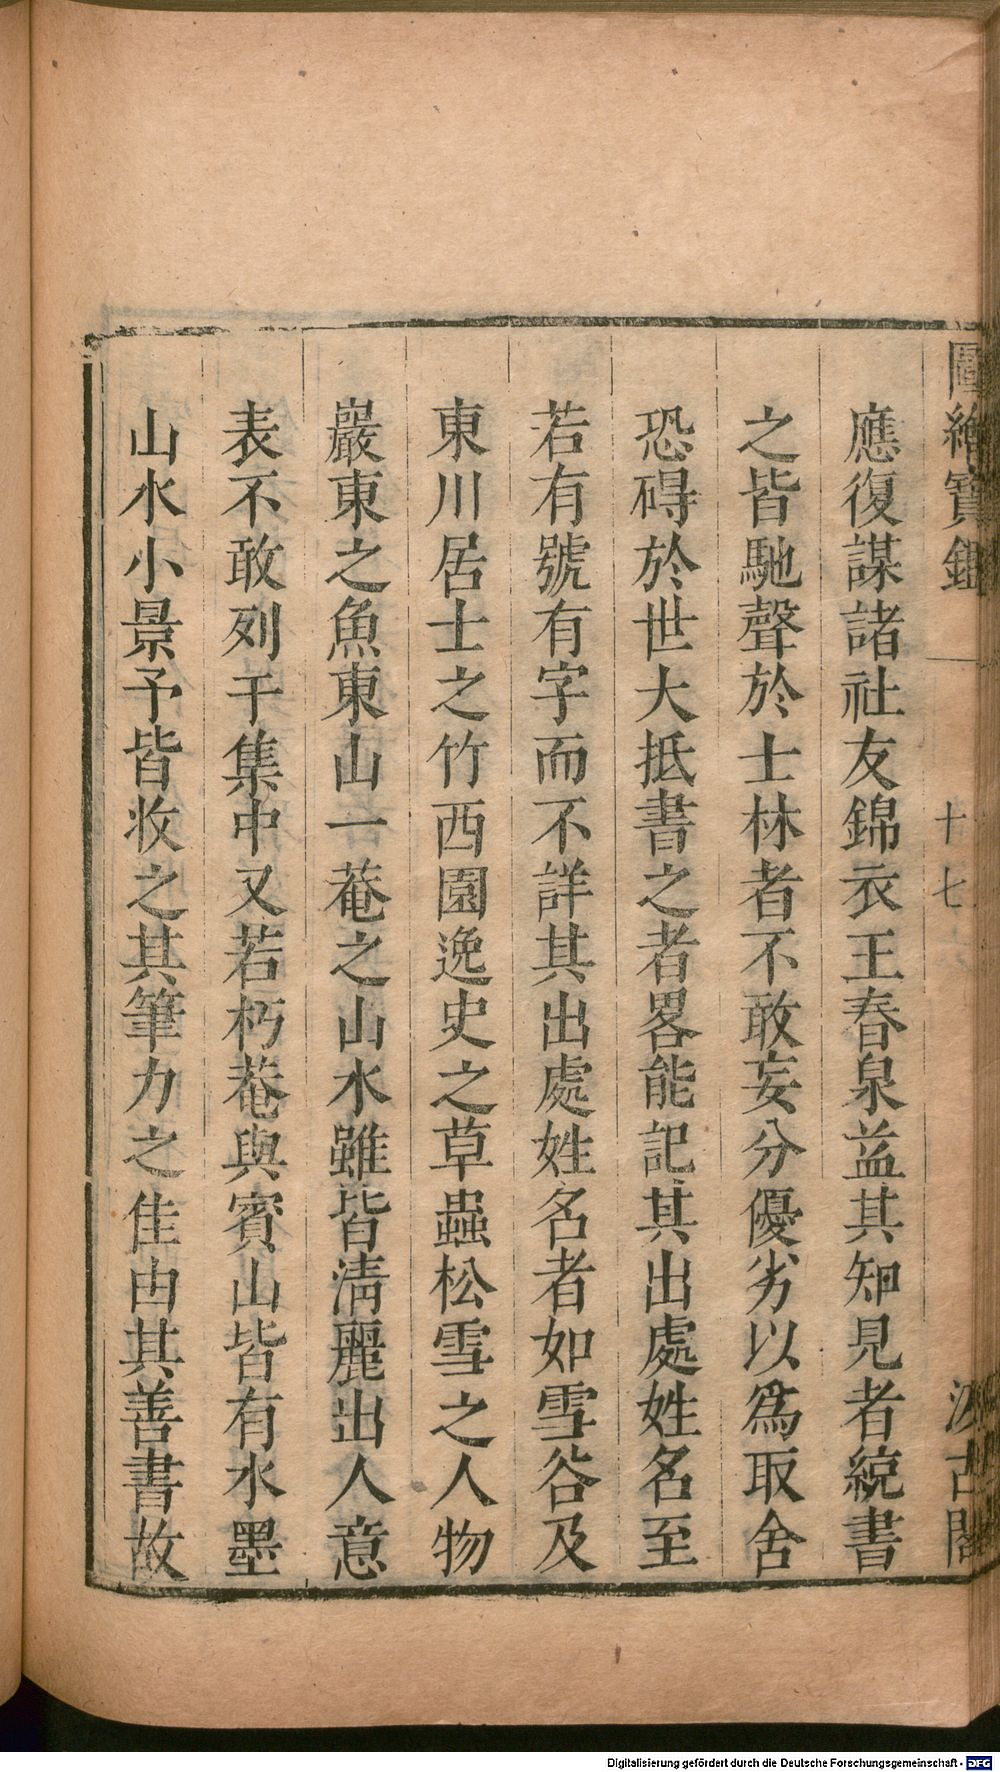 圖繪寶鑑
十七
汲古閣
應復謀諸社友錦衣王春泉益其知見者續書
之皆馳聲於士林者不敢妄分優劣以爲取舍
恐碍於世大抵書之者畧能記其出處姓名至
若有號有字而不詳其出處姓名者如雪谷及
東川居士之竹西園逸史之草蟲松雪之人物
巖東之魚東山一菴之山水雖皆淸麗出人意
表不敢列于集中又若朽菴與賓山皆有水墨
山水小景予皆收之其筆力之佳由其善書故
Digitalisierung gefördert durch die Deutsche Forschungsgemeinschaft - DFG